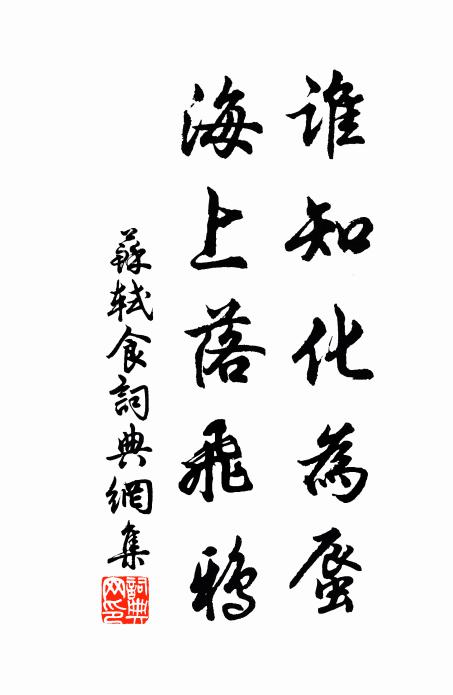 誰知化為蜃
海上落飛鴉
蘇軾食詞典網集
詞典网印